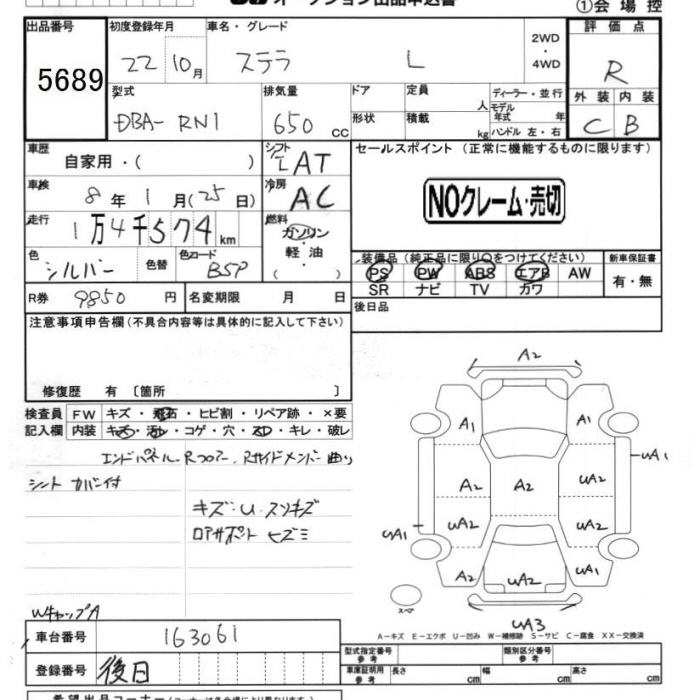 オークション出品申込書
①会場控
出品番号 初度登録年月 車名・グレード 2WD・4WD 評価点
5689 22 10月 ステラ L R
型式 排気量 ドア 定員 人 ディーラー・並行 外装 内装
DBA- RN1 650 cc 形状 積載 kg モデル年式 年 ハンドル 左・右 C B
車歴 自家用・( ) シフト IAT セールスポイント (正常に機能するものに限ります)
車検 8年1月(25日) 冷房 AC
NOクレーム・売切
走行 1万4千574km 燃料 ガソリン・軽油・( )
色 シルバー 色替 色コード BSP
装備品(純正品に限り○をつけてください) 新車保証書
PS PW ABS エアB AW 有・無
SR ナビ TV カワ
R券 9850円 名変期限 月 日
後日品
注意事項申告欄(不具合内容等は具体的に記入して下さい)
修復歴 有 〔箇所 〕
検査員 FW キズ・飛石・ヒビ割・リペア跡・×要
記入欄 内装 キズ・汚れ・コゲ・穴・スレ・キレ・破レ
エンドパネル・Rフロアー、Rサイドメンバー曲り
シートカバー付
キズ・U・スリキズ
ロアサポート ヒズミ
WキャップA
A2
A1 A1
uA1
A2 A2 uA2
uA2 uA2
uA1
A2 uA2 uA1
スペア
uA3
A−キズ E−エクボ U−凹み W−補修跡 S−サビ C−腐食 XX−交換済
車台番号 163061
型式指定番号 参考 類別区分番号 参考
登録番号 後日
車庫証明用 参考 長さ cm 幅 cm 高さ cm
希望出品コーナー